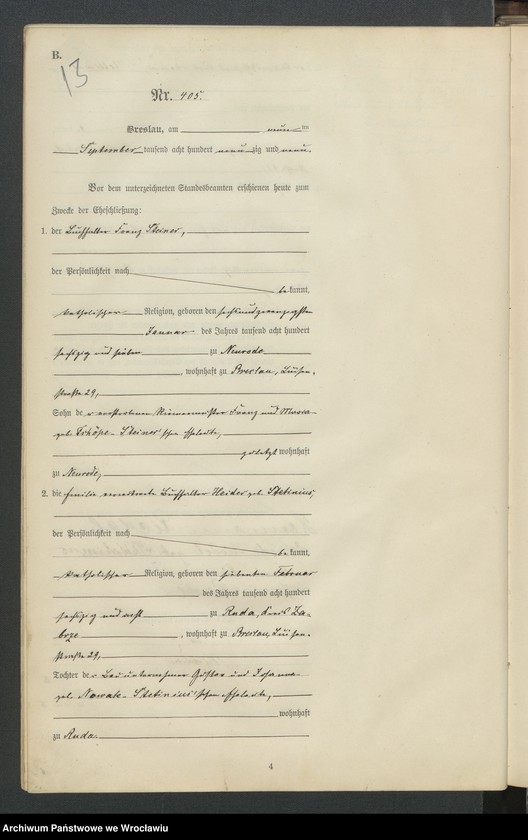 B.
13
Nr. 405.
Breslau, am neunten
September tausend acht hundert neunzig und neun.
Vor dem unterzeichneten Standesbeamten erschienen heute zum
Zwecke der Eheschließung:
1. der Buchhalter Franz Steiner,
der Persönlichkeit nach
bekannt,
katholischer Religion, geboren den sechsundzwanzigsten
Januar des Jahres tausend acht hundert
sechzig und sieben zu Neurode
, wohnhaft zu Breslau,
straße 29,
Sohn der verstorbenen Franz und
geb. Steiner'schen Eheleute,
zuletzt wohnhaft
zu Neurode,
2. die verwitwete Buchhalter Heider geb. Stetinius,
der Persönlichkeit nach
bekannt,
katholischer Religion, geboren den siebenten Februar
des Jahres tausend acht hundert
sechzig und acht zu Ruda, Kreis Za-
brze, wohnhaft zu Breslau,
straße 29,
Tochter der Bauunternehmer Gustav und Johanna
geb. Nowak Stetinius'schen Eheleute,
wohnhaft
zu Ruda.
4
Archiwum Państwowe we Wrocławiu